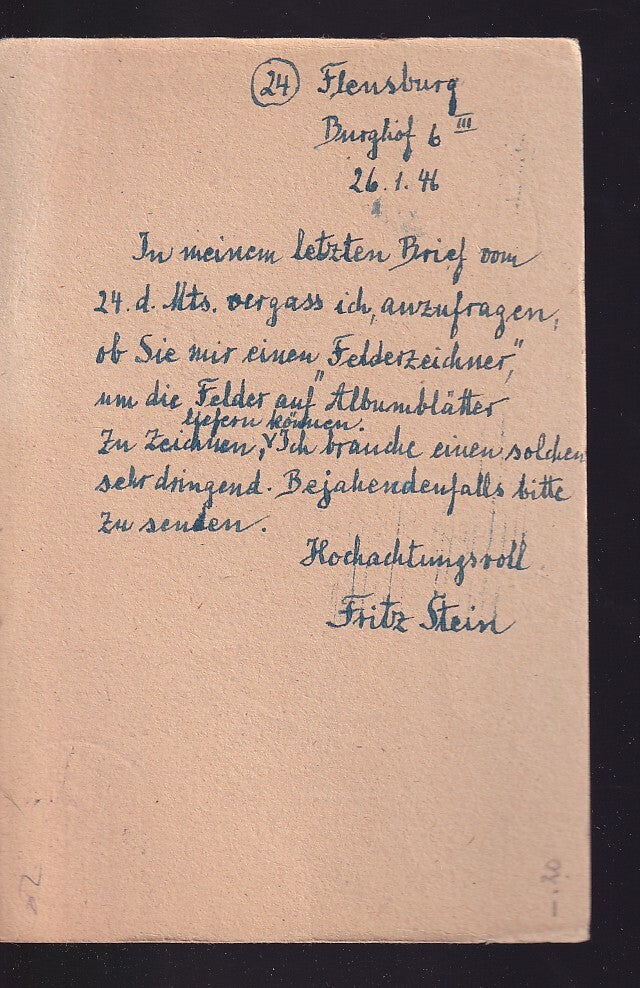 (24) Flensburg
Burghof 6 III
26.1.46
In meinem letzten Brief vom
24. d. Mts. vergass ich, anzufragen,
ob Sie mir einen "Felderzeichner",
um die Felder auf Albumblätter
liefern können.
zu zeichnen, Ich brauche einen solchen
sehr dringend. Bejahendenfalls bitte
zu senden.
Hochachtungsvoll
Fritz Stein
-.20